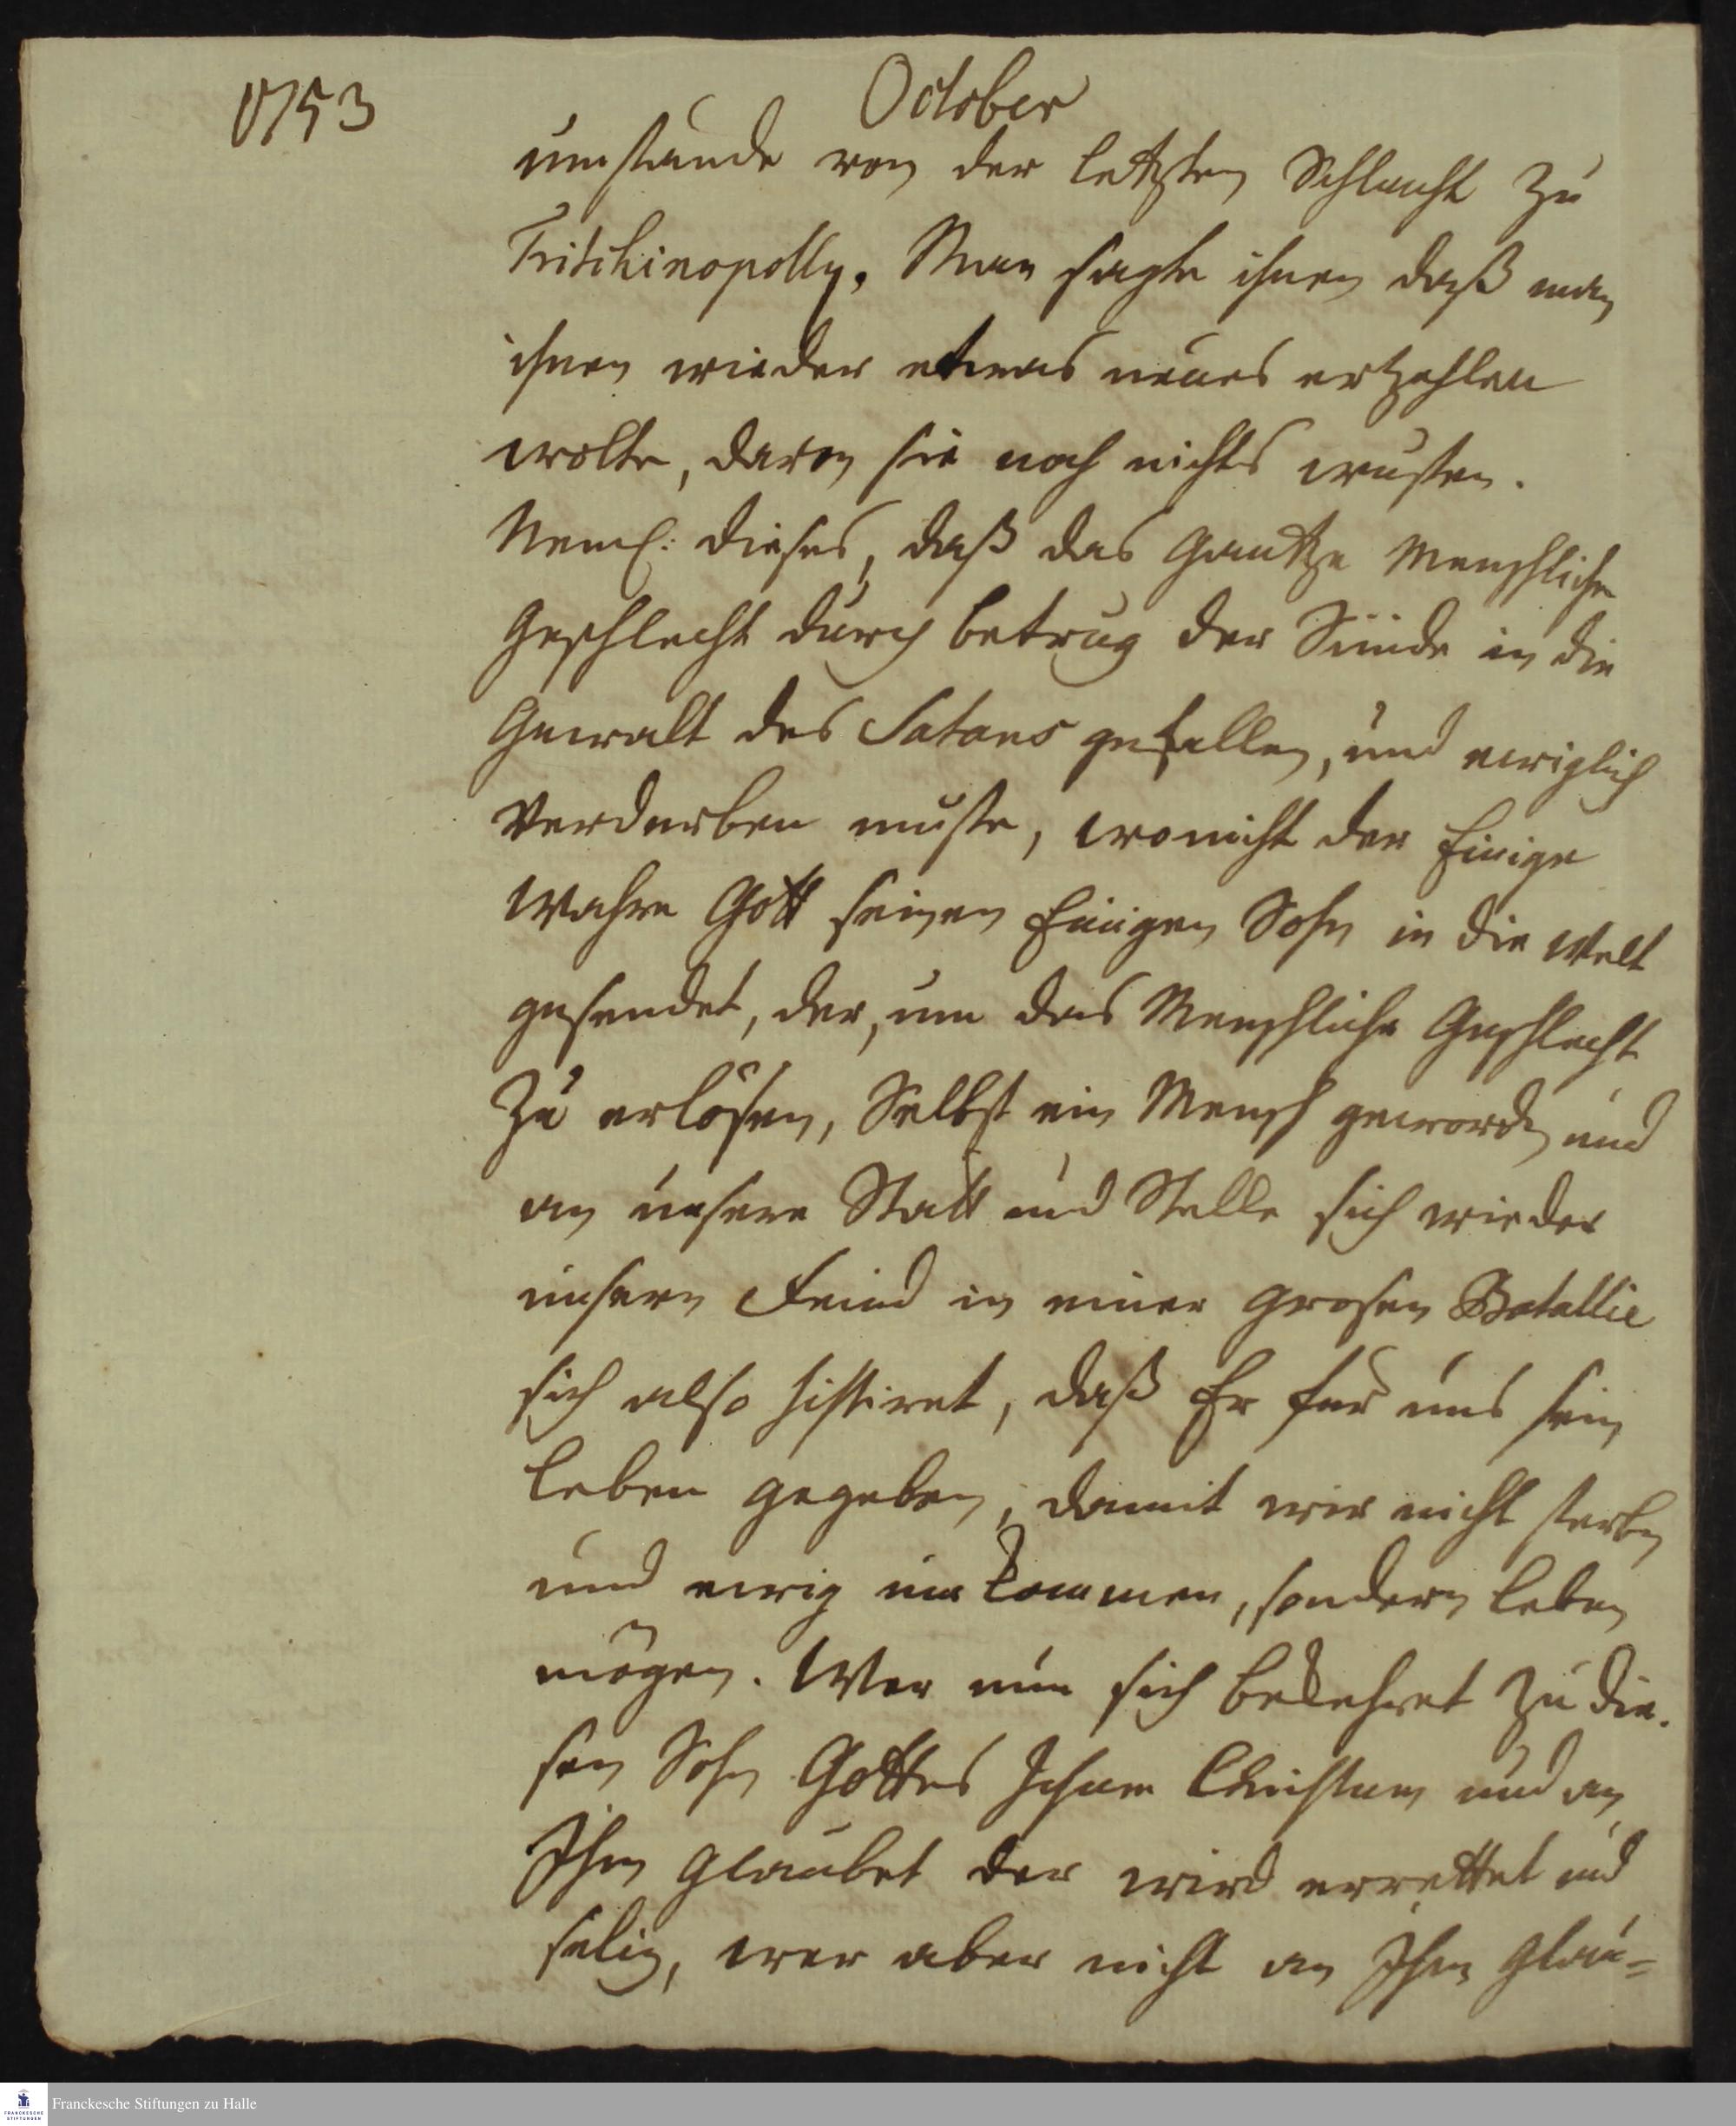 1753
October
umstande von der letzten Schlacht zu
Tritschinopolly. Man sagte ihnen daß man
ihnen wieder etwas neues ertzehlen
wolte, davon sie noch nichts wusten.
Neml: dieses, daß das Gantze Menschliche
Geschlecht durch betrug der Sünde in die
Gewalt des Satans gefallen, und ewiglich
verderben muste, wo nicht der Einige
wahre Gott seinen Einigen Sohn in die Welt
gesendet, der, um das Menschliche Geschlecht
zu erlösen, Selbst ein Mensch geworden und
an unsere Statt und Stelle sich wieder
unsern Feind in einer grosen Batallie
sich also sistiret, daß Er für uns sein
leben gegeben, damit wir nicht sterben
und ewig um kommen, sondern leben
mögen. Wer nun sich bekehret zu die-
sen Sohn Gottes Jesum Christum und an
Ihn glaubet der wird errettet und
selig, wer aber nicht an Ihn glau=
FRANCKESCHE STIFTUNGEN
Franckesche Stiftungen zu Halle